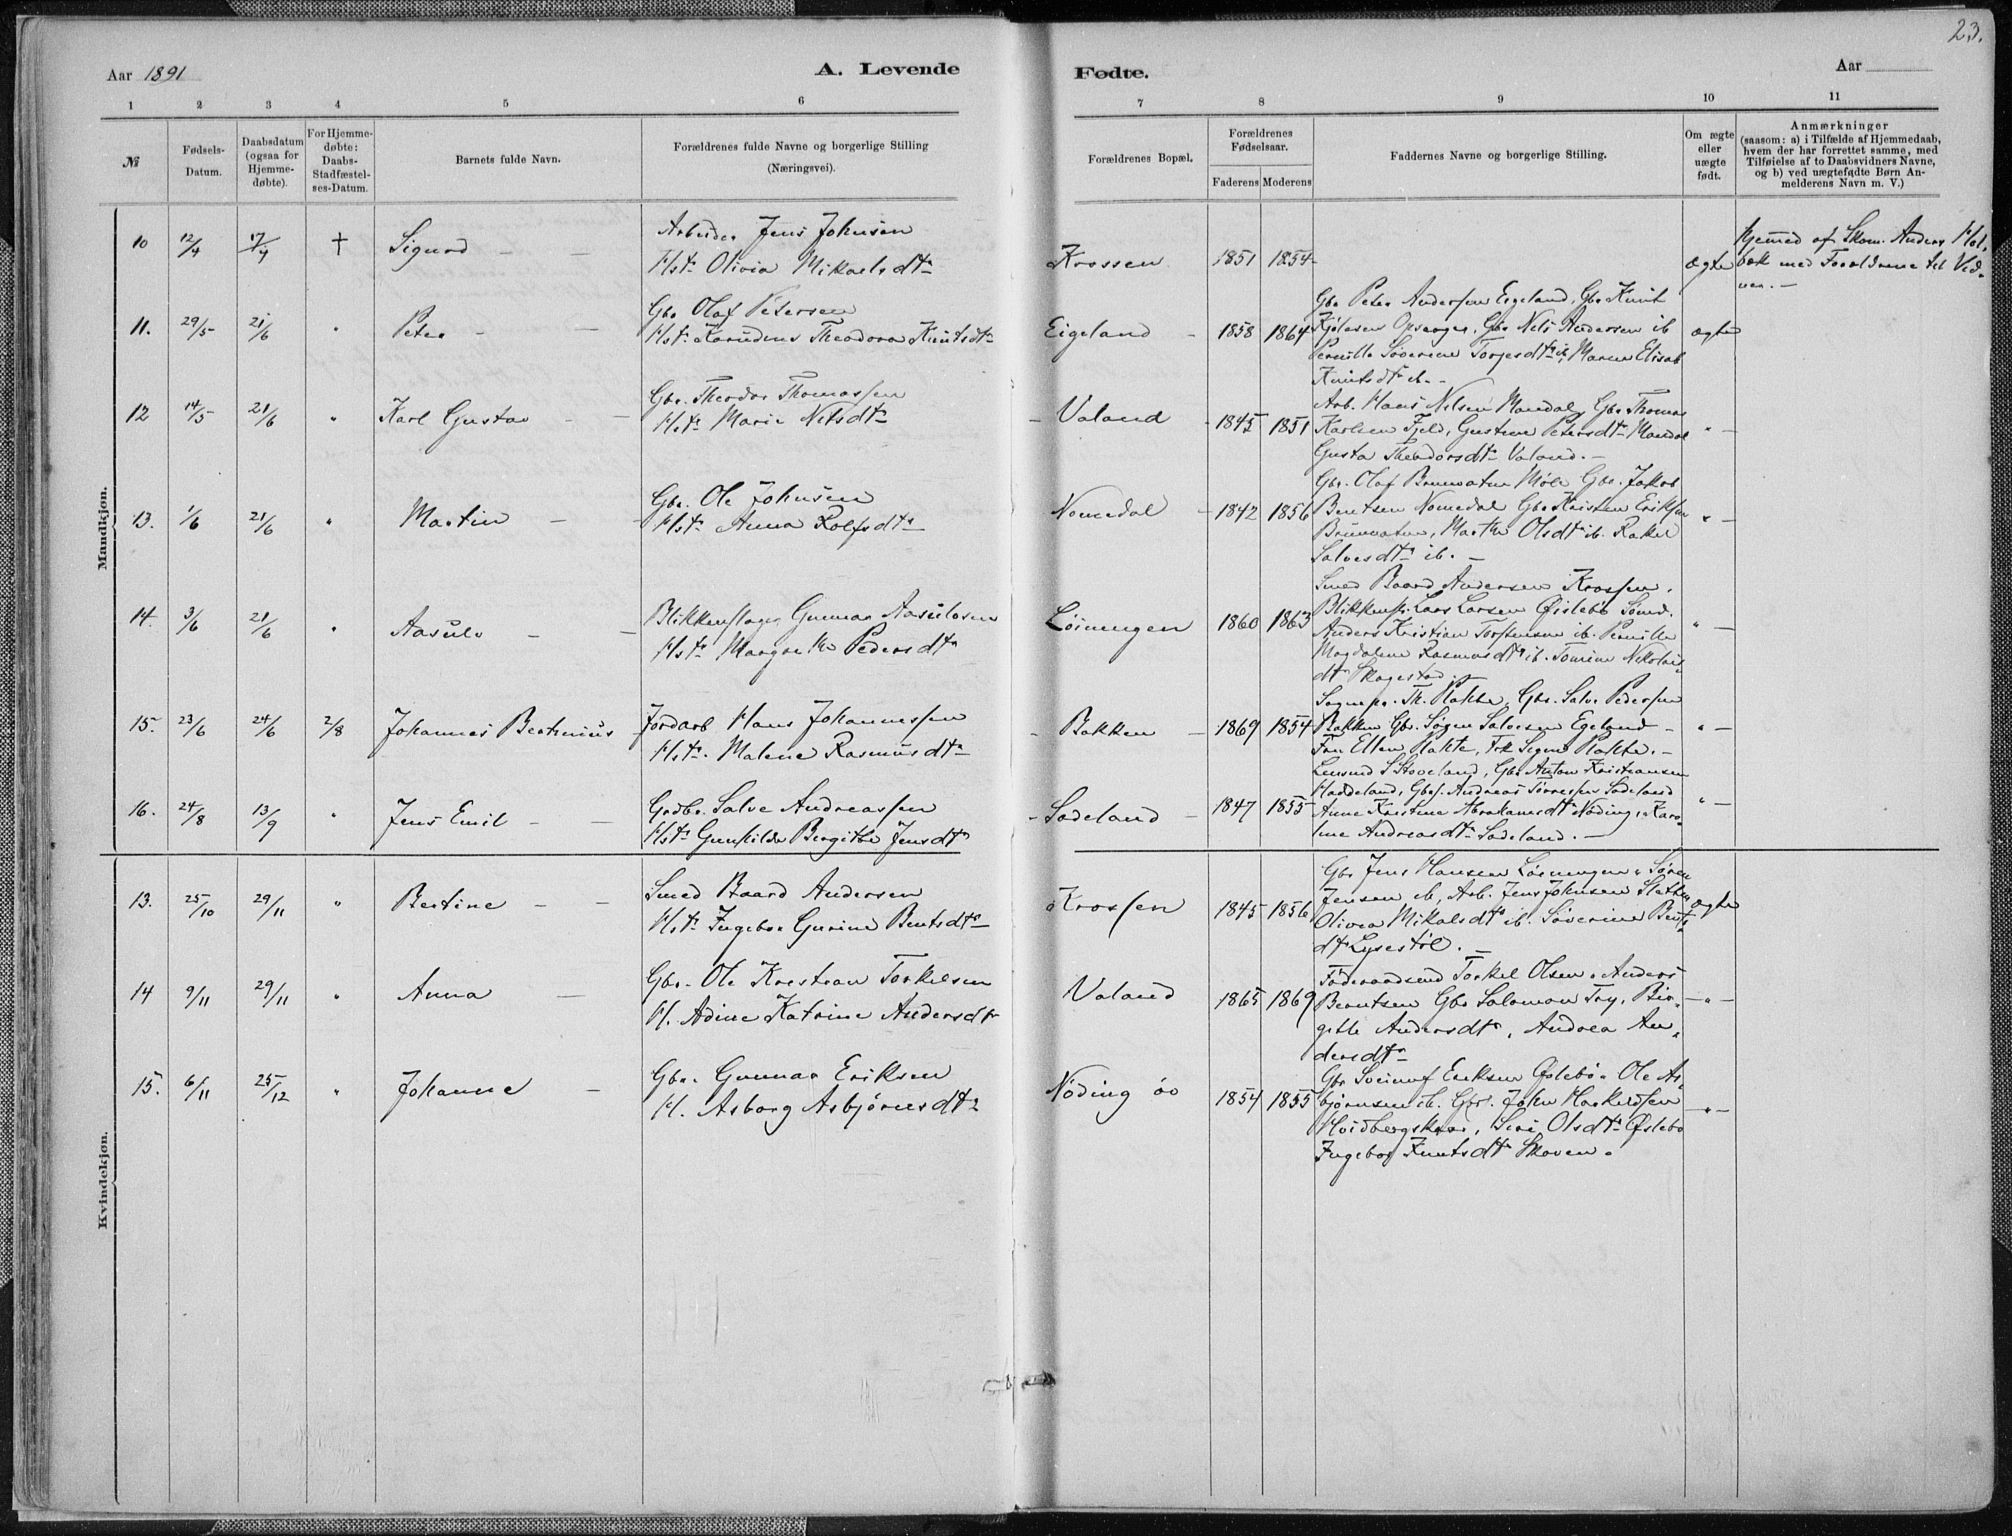 23.
Aar 1891
A. Levende
Fødte.
Aar
1 2 3 4 5 6 7 8 9 10 11
№
Fødsels-
Datum.
Daabsdatum
(ogsaa for
Hjemme-
døbte).
For Hjemme-
døbte:
Daabs-
Stadfæstel-
ses-Datum.
Barnets fulde Navn.
Forældrenes fulde Navne og borgerlige Stilling
(Næringsvei).
Forældrenes Bopæl.
Forældrenes
Fødselsaar.
Faderens Moderens
Faddernes Navne og borgerlige Stilling.
Om ægte
eller
uægte
født.
Anmærkninger
(saasom: a) i Tilfælde af Hjemmedaab,
hvem der har forrettet samme, med
Tilføielse af to Daabsvidners Navne,
og b) ved uægtefødte Børn An-
melderens Navn m. V.)
Mandkjøn.
10 12/4 17/4 † Sigurd – –
Arbeider Jens Johnsen
Hst. Olivia Mikaelsdtr
Krossen 1851 1854 ægte
hjemmed. af Skom. Anders Hol-
bæk med Forældrene til Vid-
ner. –
11. 29/5 21/6 " Peter – –
Gbr Olaf Petersen
Hst. Theodora Knutsdtr
Eigeland – 1858 1864
Gbr Peter Andersen Eigeland, Gbr Knut
Gbr Nels Andersen ib
Pernille Severine Torjesdtr ib, Maren Elisab
Knutsdtr ib. –
ægte
12 14/5 21/6 " Karl Gustav – –
Gbr. Theodor Thomassen
Hst. Marie Nelsdtr
– Valand – 1845 1851
Arb. Hans Nelsen Mandal, Gbr Thomas
Karlsen Fjeld, Gustine Petersdtr Mandal
Gusta Theodorsdtr Valand. –
" –
13. 1/6 21/6 " Martin – –
Gbr. Ole Johnsen
Hst. Anna Rolfsdtr
Nomedal – 1842 1856
Gbr. Olaf Brunvatne Møll Gbr. Jakob
Bentsen Nomedal Gbr Kristen Eriksen
Brunvatne, Marthe Olsdtr ib. Rakel
Salvesdtr ib. –
" –
14. 3/6 21/6 " Aasulv – –
Blikkenslager Gunnar Aasulvsen
Hst. Margrethe Pedersdtr
Løiningen 1860 1863
Smed Baard Andersen Krossen,
Blikkensl. Lars Larsen Øislebø Smed
Anders Kristian Torstensen ib. Pernille
Magdalene Rasmusdtr ib. Tomine Nikolais-
dtr Skagestad.
" –
15. 23/6 24/6 2/8 Johannes Bertinius
Jordarb Hans Johannessen
Hst. Malene Rasmusdtr
– Bakken – 1869 1854
Sognepr. Th. Hakke, Gbr. Salve Pedersen
Bakken Gbr. Søren Salvesen Egeland –
Fru Ellen Hakke, Frk Signe Hakke. –
" –
16. 24/8 13/9 " Jens Emil – –
Grdbr. Salve Andreassen
Hst. Gunhilde Bergithe Jensdtr
– Sodeland – 1847 1855
Lensmd S Stoveland, Gbr Anton Kristiansen
Haddeland, Gbr. Andreas Tørresen Sodeland
Anne Kristine Abrahamsdtr Nøding, Karo-
line Andreasdtr Sodeland. –
" –
Kvindekjøn.
13. 25/10 29/11 " Bertine – –
Smed Baard Andersen
Hst. Ingebor Gurine Bentsdtr
Krossen 1845 1856
Gbr Jens Hansen Løiningen, Søren
Jensen ib, Arb. Jens Johnsen Sletten
Olivia Mikalsdtr ib. Severine Bents-
dtr Lysestøl. –
ægte
14 9/11 29/11 " Anna –
Gbr. Ole Kristian Torkelsen
H. Adine Katrine Andersdtr
Valand 1865 1869
Føderaadsmd Torkel Olsen, Anders
Berntsen Gbr Salomon Try, Bir-
gitte Andersdtr, Andrea An-
dersdtr
– " –
15. 6/11 25/12 " Johanne –
Gbr. Gunnar Eriksen
H. Asborg Asbjørnsdtr
Nøding øv 1854 1855
Gbr Sveinulf Eriksen Øslebø, Ole As-
bjørnsen ib. Gbr. John Haskildsen
Hvidbergskar, Siri Olsdtr Øslebø
Ingebor Knutsdtr Skoven.
– " –